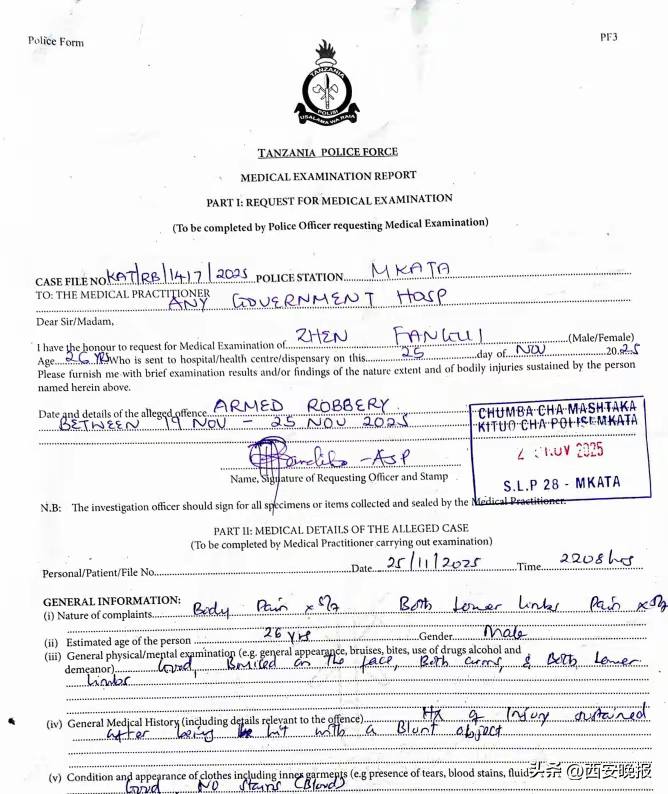 Police Form
PF3
TANZANIA
POLISI
USALAMA WA RAIA
TANZANIA POLICE FORCE
MEDICAL EXAMINATION REPORT
PART I: REQUEST FOR MEDICAL EXAMINATION
(To be completed by Police Officer requesting Medical Examination)
CASE FILE NO. KAT/RB/1417/2025 POLICE STATION MKATA
TO: THE MEDICAL PRACTITIONER
ANY GOVERNMENT HOSP
Dear Sir/Madam,
I have the honour to request for Medical Examination of ZHEN FANGUI (Male/Female)
Age 26 YRS Who is sent to hospital/health centre/dispensary on this 25 day of NOV 2025
Please furnish me with brief examination results and/or findings of the nature extent and of bodily injuries sustained by the person
named herein above.
Date and details of the alleged offence. ARMED ROBBERY
BETWEEN 19 NOV - 25 NOV 2025
CHUMBA CHA MASHTAKA
KITUO CHA POLISI MKATA
NOV 2025
S.L.P 28 - MKATA
-ASP
Name, Signature of Requesting Officer and Stamp
N.B: The investigation officer should sign for all specimens or items collected and sealed by the Medical Practitioner.
PART II: MEDICAL DETAILS OF THE ALLEGED CASE
(To be completed by Medical Practitioner carrying out examination)
Personal/Patient/File No. Date 25/11/2025 Time 2208hrs
GENERAL INFORMATION:
(i) Nature of complaints Body Pain Both Lower limbs Pain
(ii) Estimated age of the person 26 yrs Gender Male
(iii) General physical/mental examination (e.g. general appearance, bruises, bites, use of drugs alcohol and
demeanor) Good, Bruised on the face, Both arms, & Both Lower
limbs
(iv) General Medical History (including details relevant to the offence) Hx of Injury sustained
after being hit with a Blunt object
(v) Condition and appearance of clothes including inner garments (e.g presence of tears, blood stains, fluid
Good. NO stains (Blood)
头条 @西安晚报